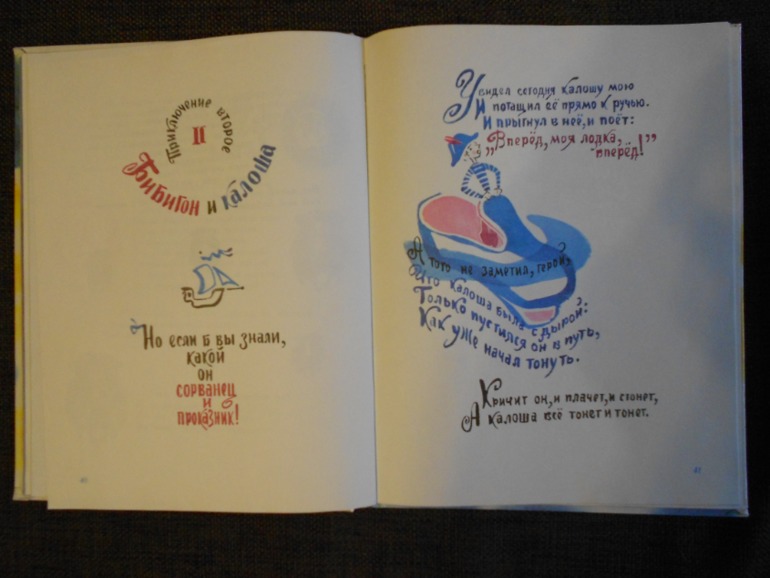 Приключение второе
II
Бибигон и калоша
Но если б вы знали,
какой
он
сорванец
и
проказник!
Увидел сегодня калошу мою
И потащил её прямо к ручью.
И прыгнул в неё, и поёт:
„Вперёд, моя лодка,
вперёд!”
А того не заметил, герой,
Что калоша была с дырой:
Только пустился он в путь,
Как уже начал тонуть.
Кричит он, и плачет, и стонет,
А калоша всё тонет и тонет.